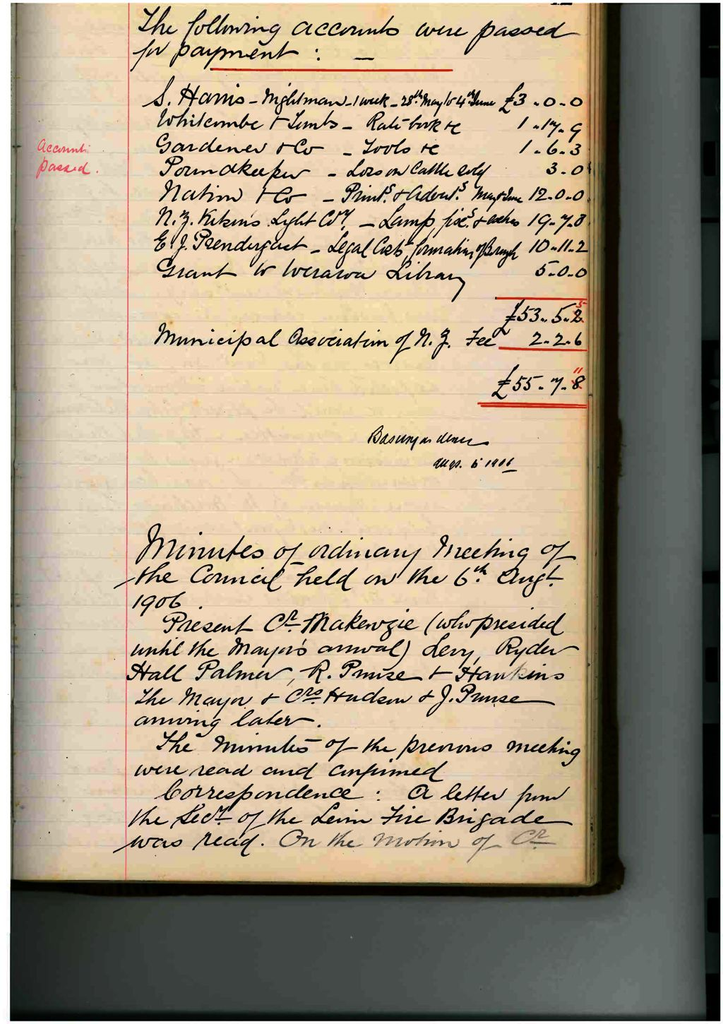 The following accounts were passed
for payment : —
S. Harris – Nightman – 1 week – 28th May to 4th June £3 - 0 - 0
Whitcombe & Tombs – Rate book &c 1 - 17 - 9
Gardener & Co – Tools &c 1 - 6 - 3
Accounts
passed.
Poundkeeper – Loss on Cattle sold 3 - 0
Nation & Co – Printg. & Advertg. May & June 12 - 0 - 0
N.Z. Light Coy – Lamp, 19 - 7 - 8
E. J. Prendergast – Legal Costs formation of Borough 10 - 11 - 2
Grant to Weraroa Library 5 - 0 - 0
£53 - 5 - 2
Municipal Association of N.Z. Fee 2 - 2 - 6
£55 - 7 - 8
Augs. 6 1906
Minutes of ordinary Meeting of
the Council held on the 6th Augt.
1906
Present Cr. Makenzie (who presided
until the Mayor's arrival) Levy, Ryder
Hall Palmer, R. Prouse & Hankins
The Mayor & Crs. Hudson & J. Prouse
arriving later.
The Minutes of the previous meeting
were read and confirmed
Correspondence : A letter from
the Secy. of the Levin Fire Brigade
was read. On the motion of Cr.